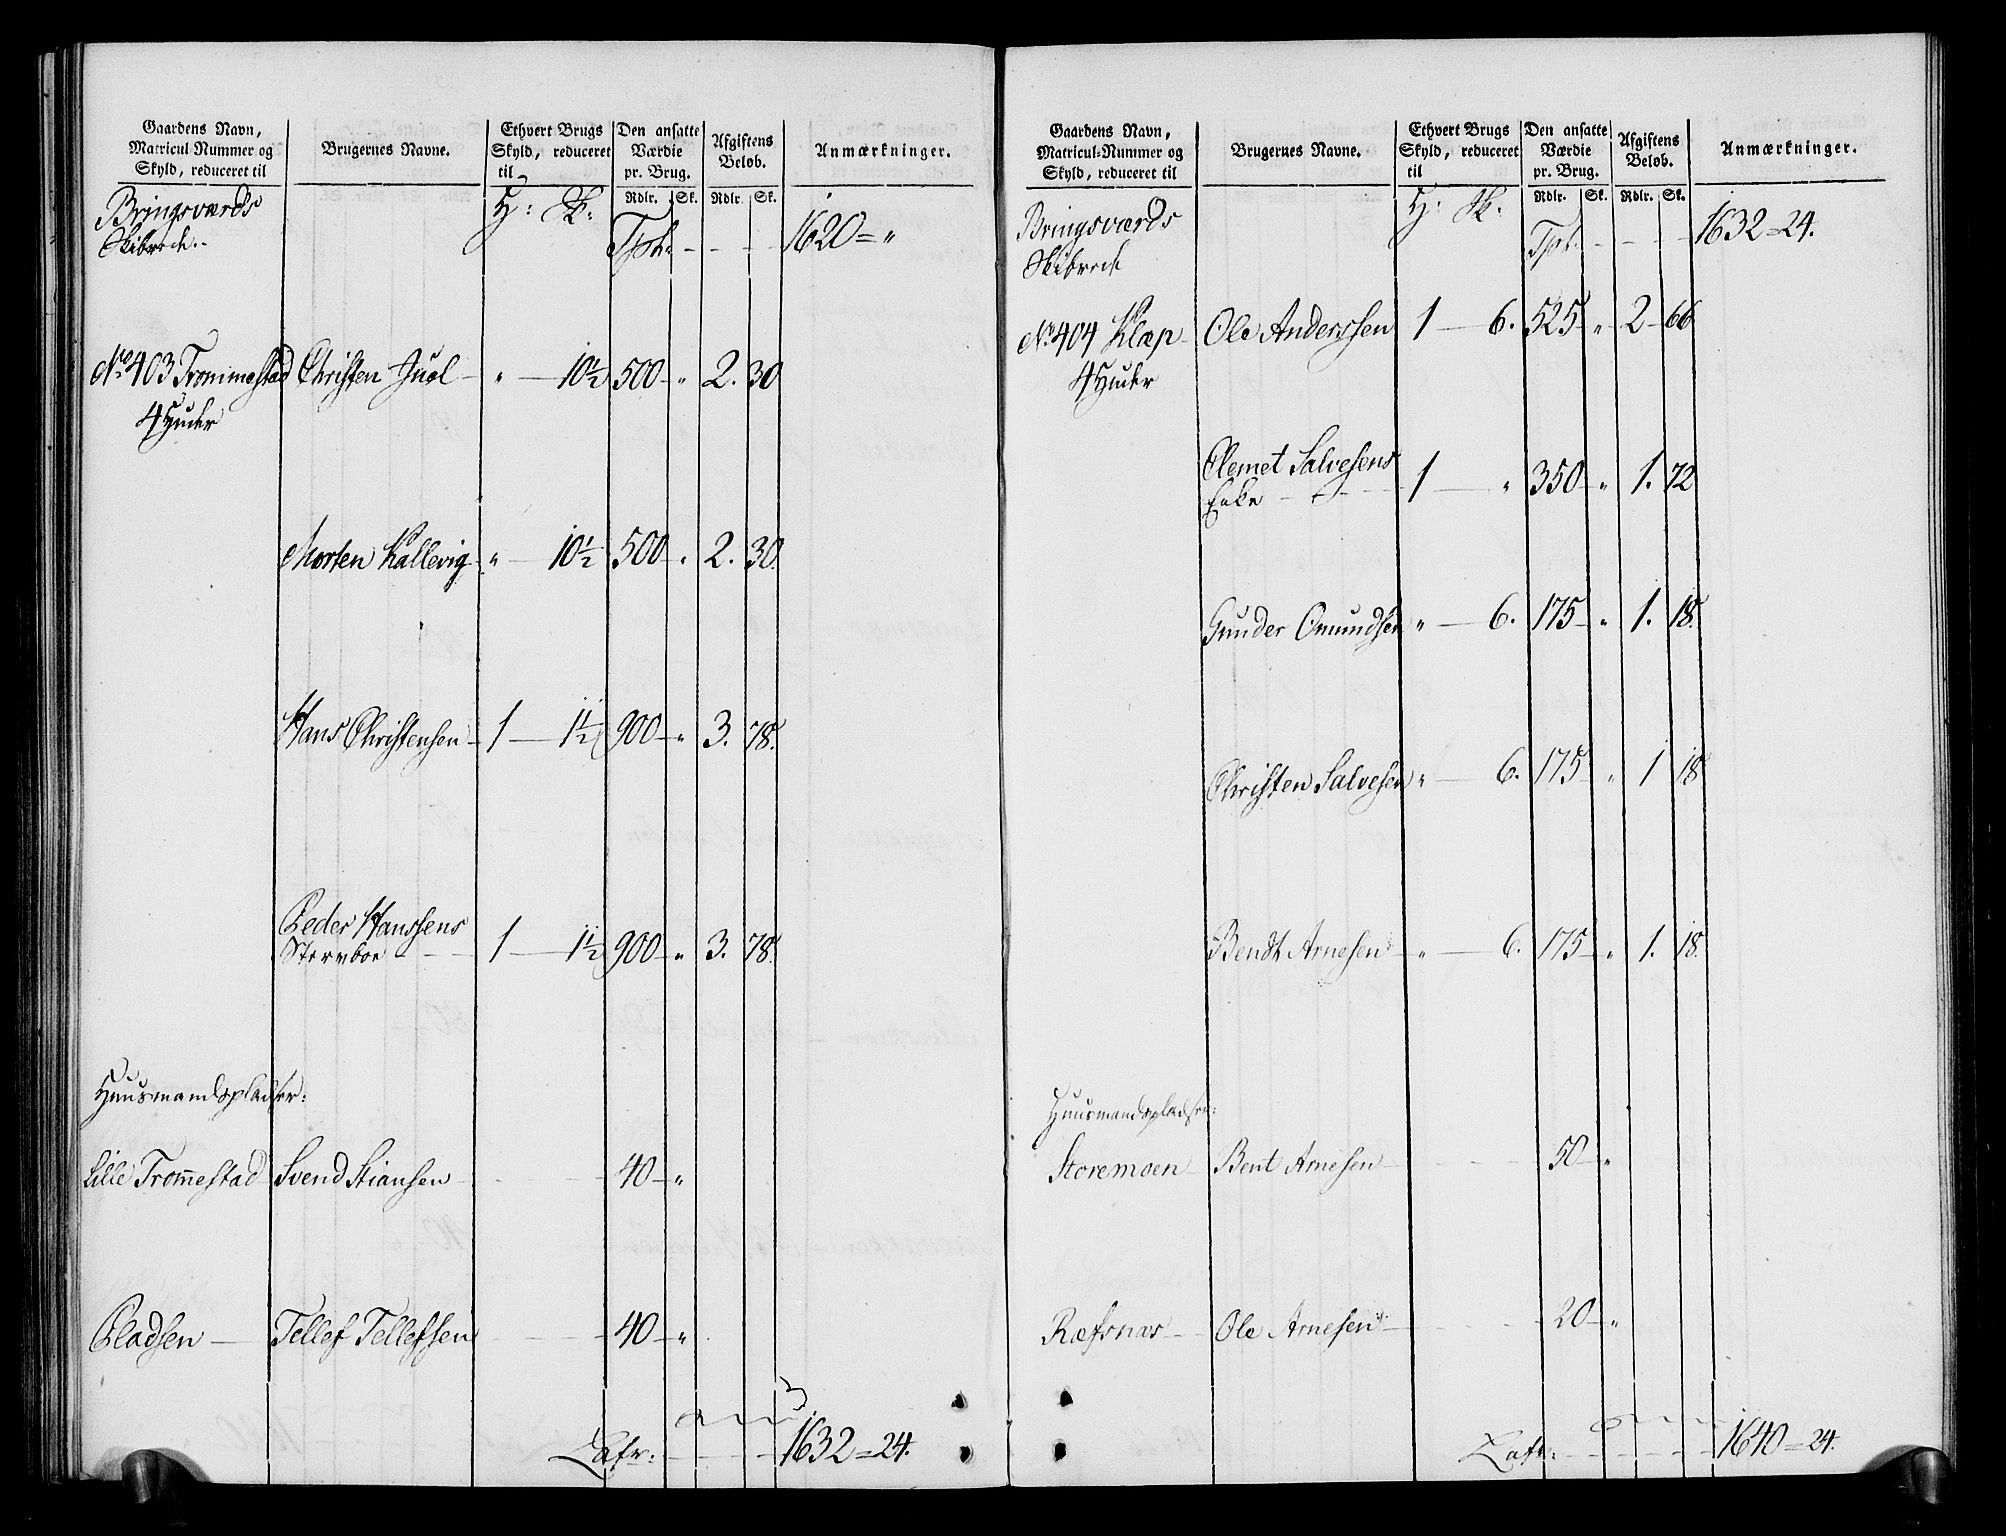 Gaardens Navn,
Matricul-Nummer og
Skyld, reduceret til
Brugernes Navne.
Ethvert Brugs
Skyld, reduceret
til
Den ansatte
Værdie
pr. Brug.
Rdlr. Sk.
Afgiftens
Beløb.
Rdlr. Sk.
Anmærkninger.
Bringsværds
Skibrede.
H: Sk:
Tpt. - - - 1620 = "
No 403 Trommestad Christen Juel - " - 10½ 500 - " 2. 30
4 Huder
Morten Kallevig - " - 10½ 500 - " 2. 30.
Hans Christensen - 1 - 1½ 900 - " 3. 78.
Peder Hanssens
Stervboe - - - 1 - 1½ 900 - " 3. 78.
Huusmandspladser:
Lille Trom̄estad Svend Stiansen - - - 40 - "
Pladsen - Tellef Tellefsen - - - 40 - "
Lafr: - - - 1632 = 24.
Gaardens Navn,
Matricul-Nummer og
Skyld, reduceret til
Brugernes Navne.
Ethvert Brugs
Skyld, reduceret
til
Den ansatte
Værdie
pr. Brug.
Rdlr. Sk.
Afgiftens
Beløb.
Rdlr. Sk.
Anmærkninger.
Bringsværds
Skibrede
H: Sk:
Tpt. - - - 1632 = 24.
No 404 Klep - Ole Anderssen 1 - 6. 525 - " 2 - 66
4 Huder
Clemet Salvesens
Enke - - - 1 - " 350 - " 1. 72
Gunder Omundsen " - 6. 175 - " 1. 18.
Christen Salvesen " - 6. 175 - " 1 18
Bendt Arnesen - " - 6. 175 - " 1. 18.
Huusmandspladser:
Storemoen - Bent Arnesen - - - 50 - "
Ræfsnæs - - Ole Arnesen - - - 20 - "
Lafr: - - - 1640 = 24.